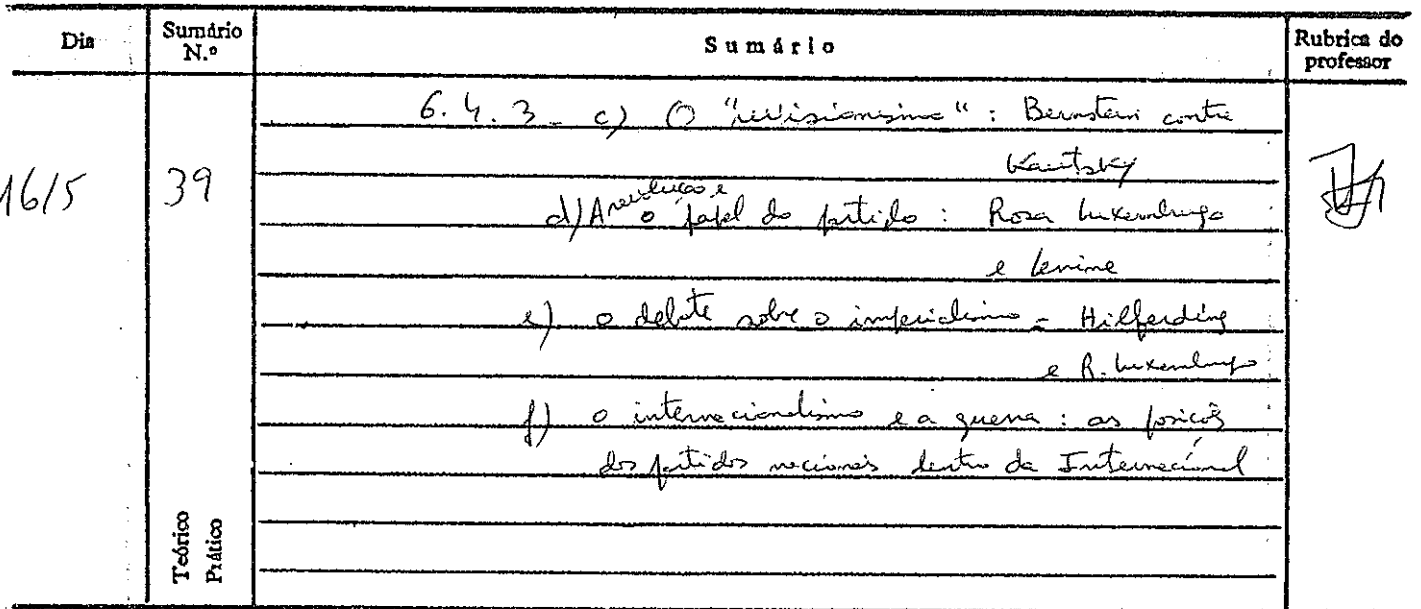 Dia
Sumário N.º
Sumário
Rubrica do professor
6.4.3 - c) O "revisionismo" : Bernstein contra
Kautsky
16/5
39
d) A revolução e o papel do partido : Rosa Luxemburgo
e Lenine
e) o debate sobre o imperialismo - Hilferding
e R. Luxemburgo
f) o internacionalismo e a guerra : as posições
dos partidos nacionais dentro da Internacional
Teórico
Prático